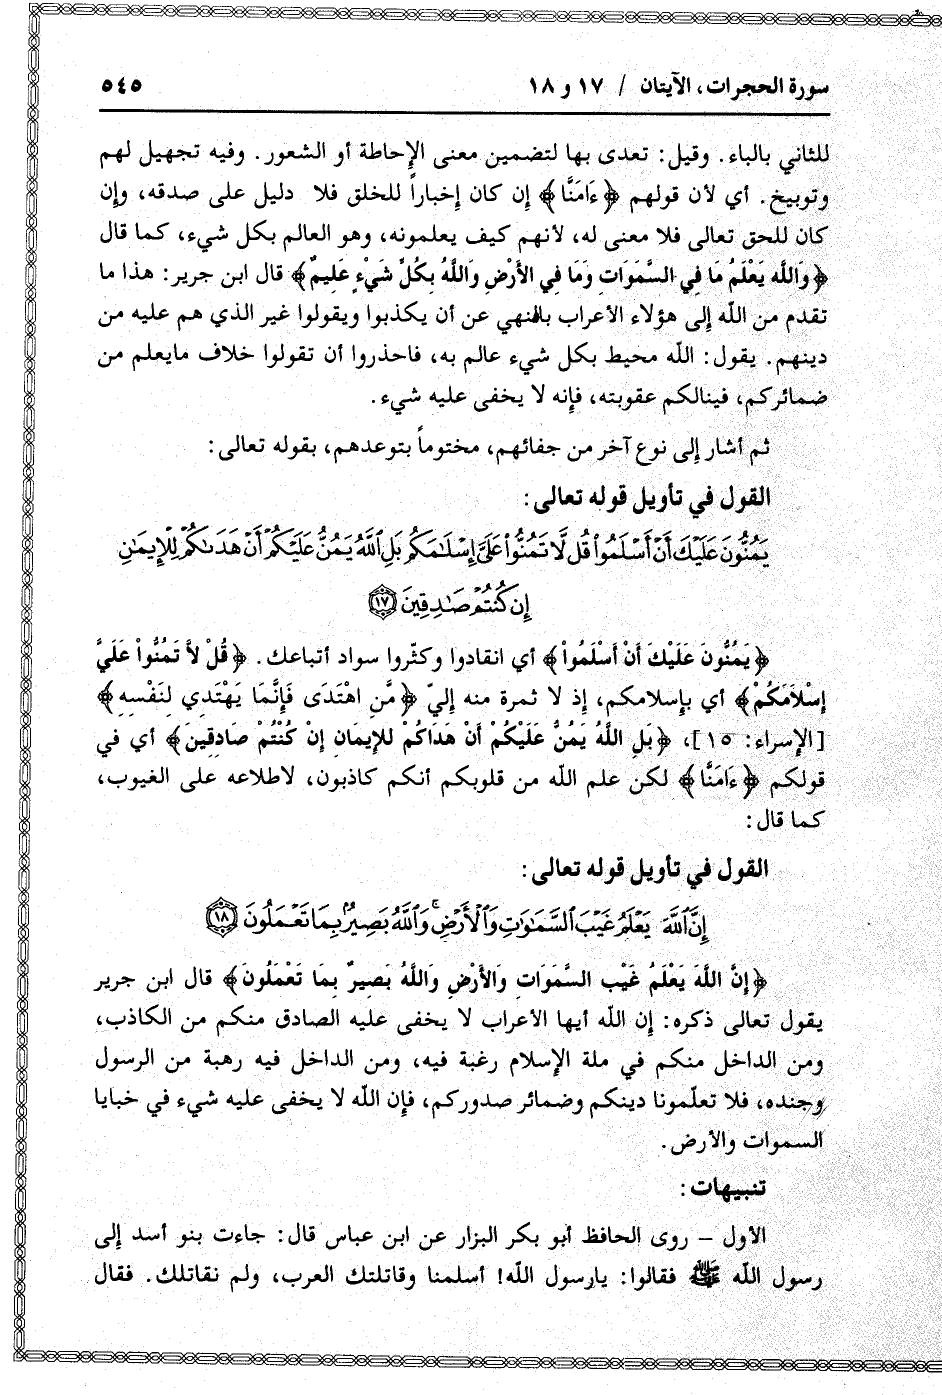 سورة الحجرات، الآيتان / ١٧ و ١٨ ٥٤٥
للثاني بالباء. وقيل: تعدى بها لتضمين معنى الإحاطة أو الشعور. وفيه تجهيل لهم
وتوبيخ. أي لأن قولهم ﴿ءَامَنَّا﴾ إن كان إخباراً للخلق فلا دليل على صدقه، وإن
كان للحق تعالى فلا معنى له، لأنهم كيف يعلمونه، وهو العالم بكل شيء، كما قال
﴿وَاللَّه يَعْلَمُ مَا فِي السَّمَوَاتِ وَمَا فِي الأَرْضِ وَاللَّهُ بِكُلِّ شَيْءٍ عَلِيمٌ﴾ قال ابن جرير: هذا ما
تقدم من اللّه إلى هؤلاء الأعراب بالنهي عن أن يكذبوا ويقولوا غير الذي هم عليه من
دينهم. يقول: اللّه محيط بكل شيء عالم به، فاحذروا أن تقولوا خلاف مايعلم من
ضمائركم، فينالكم عقوبته، فإنه لا يخفى عليه شيء.
ثم أشار إلى نوع آخر من جفائهم، مختوماً بتوعدهم، بقوله تعالى:
القول في تأويل قوله تعالى:
يَمُنُّونَ عَلَيْكَ أَنْ أَسْلَمُواْ قُل لَّا تَمُنُّواْ عَلَىَّ إِسْلَٰمَكُم بَلِ ٱللَّهُ يَمُنُّ عَلَيْكُمْ أَنْ هَدَىٰكُمْ لِلْإِيمَٰنِ
إِن كُنتُمْ صَٰدِقِينَ ١٧
﴿يَمُنُّونَ عَلَيْكَ أَنْ أَسْلَمُواْ﴾ أي انقادوا وكثّروا سواد أتباعك. ﴿قُلْ لاَّ تَمُنُّواْ عَلَيَّ
إِسْلَامَكُمْ﴾ أي بإسلامكم، إذ لا ثمرة منه إليّ ﴿مَّنِ اهْتَدَى فَإِنَّمَا يَهْتَدِي لِنَفْسِهِ﴾
[الإسراء: ١٥]، ﴿بَلِ اللَّهُ يَمُنُّ عَلَيْكُمْ أَنْ هَدَاكُمْ لِلإِيمَانِ إِنْ كُنْتُمْ صَادِقِينَ﴾ أي في
قولكم ﴿ءَامَنَّا﴾ لكن علم اللّه من قلوبكم أنكم كاذبون، لاطلاعه على الغيوب،
كما قال:
القول في تأويل قوله تعالى:
إِنَّ ٱللَّهَ يَعْلَمُ غَيْبَ ٱلسَّمَٰوَٰتِ وَٱلْأَرْضِ ۚ وَٱللَّهُ بَصِيرٌۢ بِمَا تَعْمَلُونَ ١٨
﴿إِنَّ اللَّهَ يَعْلَمُ غَيْبَ السَّمَوَاتِ وَالأَرْضِ وَاللَّهُ بَصِيرٌ بِمَا تَعْمَلُونَ﴾ قال ابن جرير
يقول تعالى ذكره: إن اللّه أيها الأعراب لا يخفى عليه الصادق منكم من الكاذب،
ومن الداخل منكم في ملة الإسلام رغبة فيه، ومن الداخل فيه رهبة من الرسول
وجنده، فلا تعلّمونا دينكم وضمائر صدوركم، فإن اللّه لا يخفى عليه شيء في خبايا
السموات والأرض.
تنبيهات:
الأول – روى الحافظ أبو بكر البزار عن ابن عباس قال: جاءت بنو أسد إلى
رسول اللّه ﷺ فقالوا: يارسول اللّه! أسلمنا وقاتلتك العرب، ولم نقاتلك. فقال